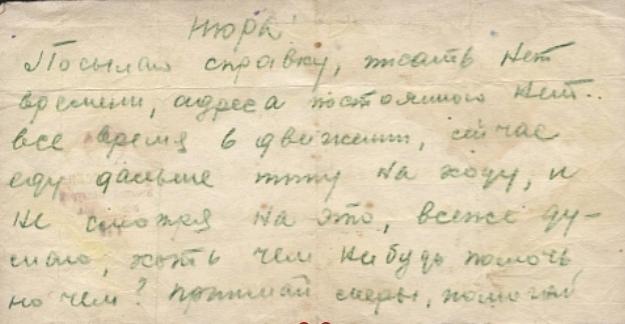 Нюра!
Посылаю справку, писать нет
времени, адреса постоянного нет.
все время в движении, сейчас
еду дальше пишу на ходу, и
не смотря на это, все же ду-
маю, хоть чем нибудь помочь,
но чем? принимай меры, помогай